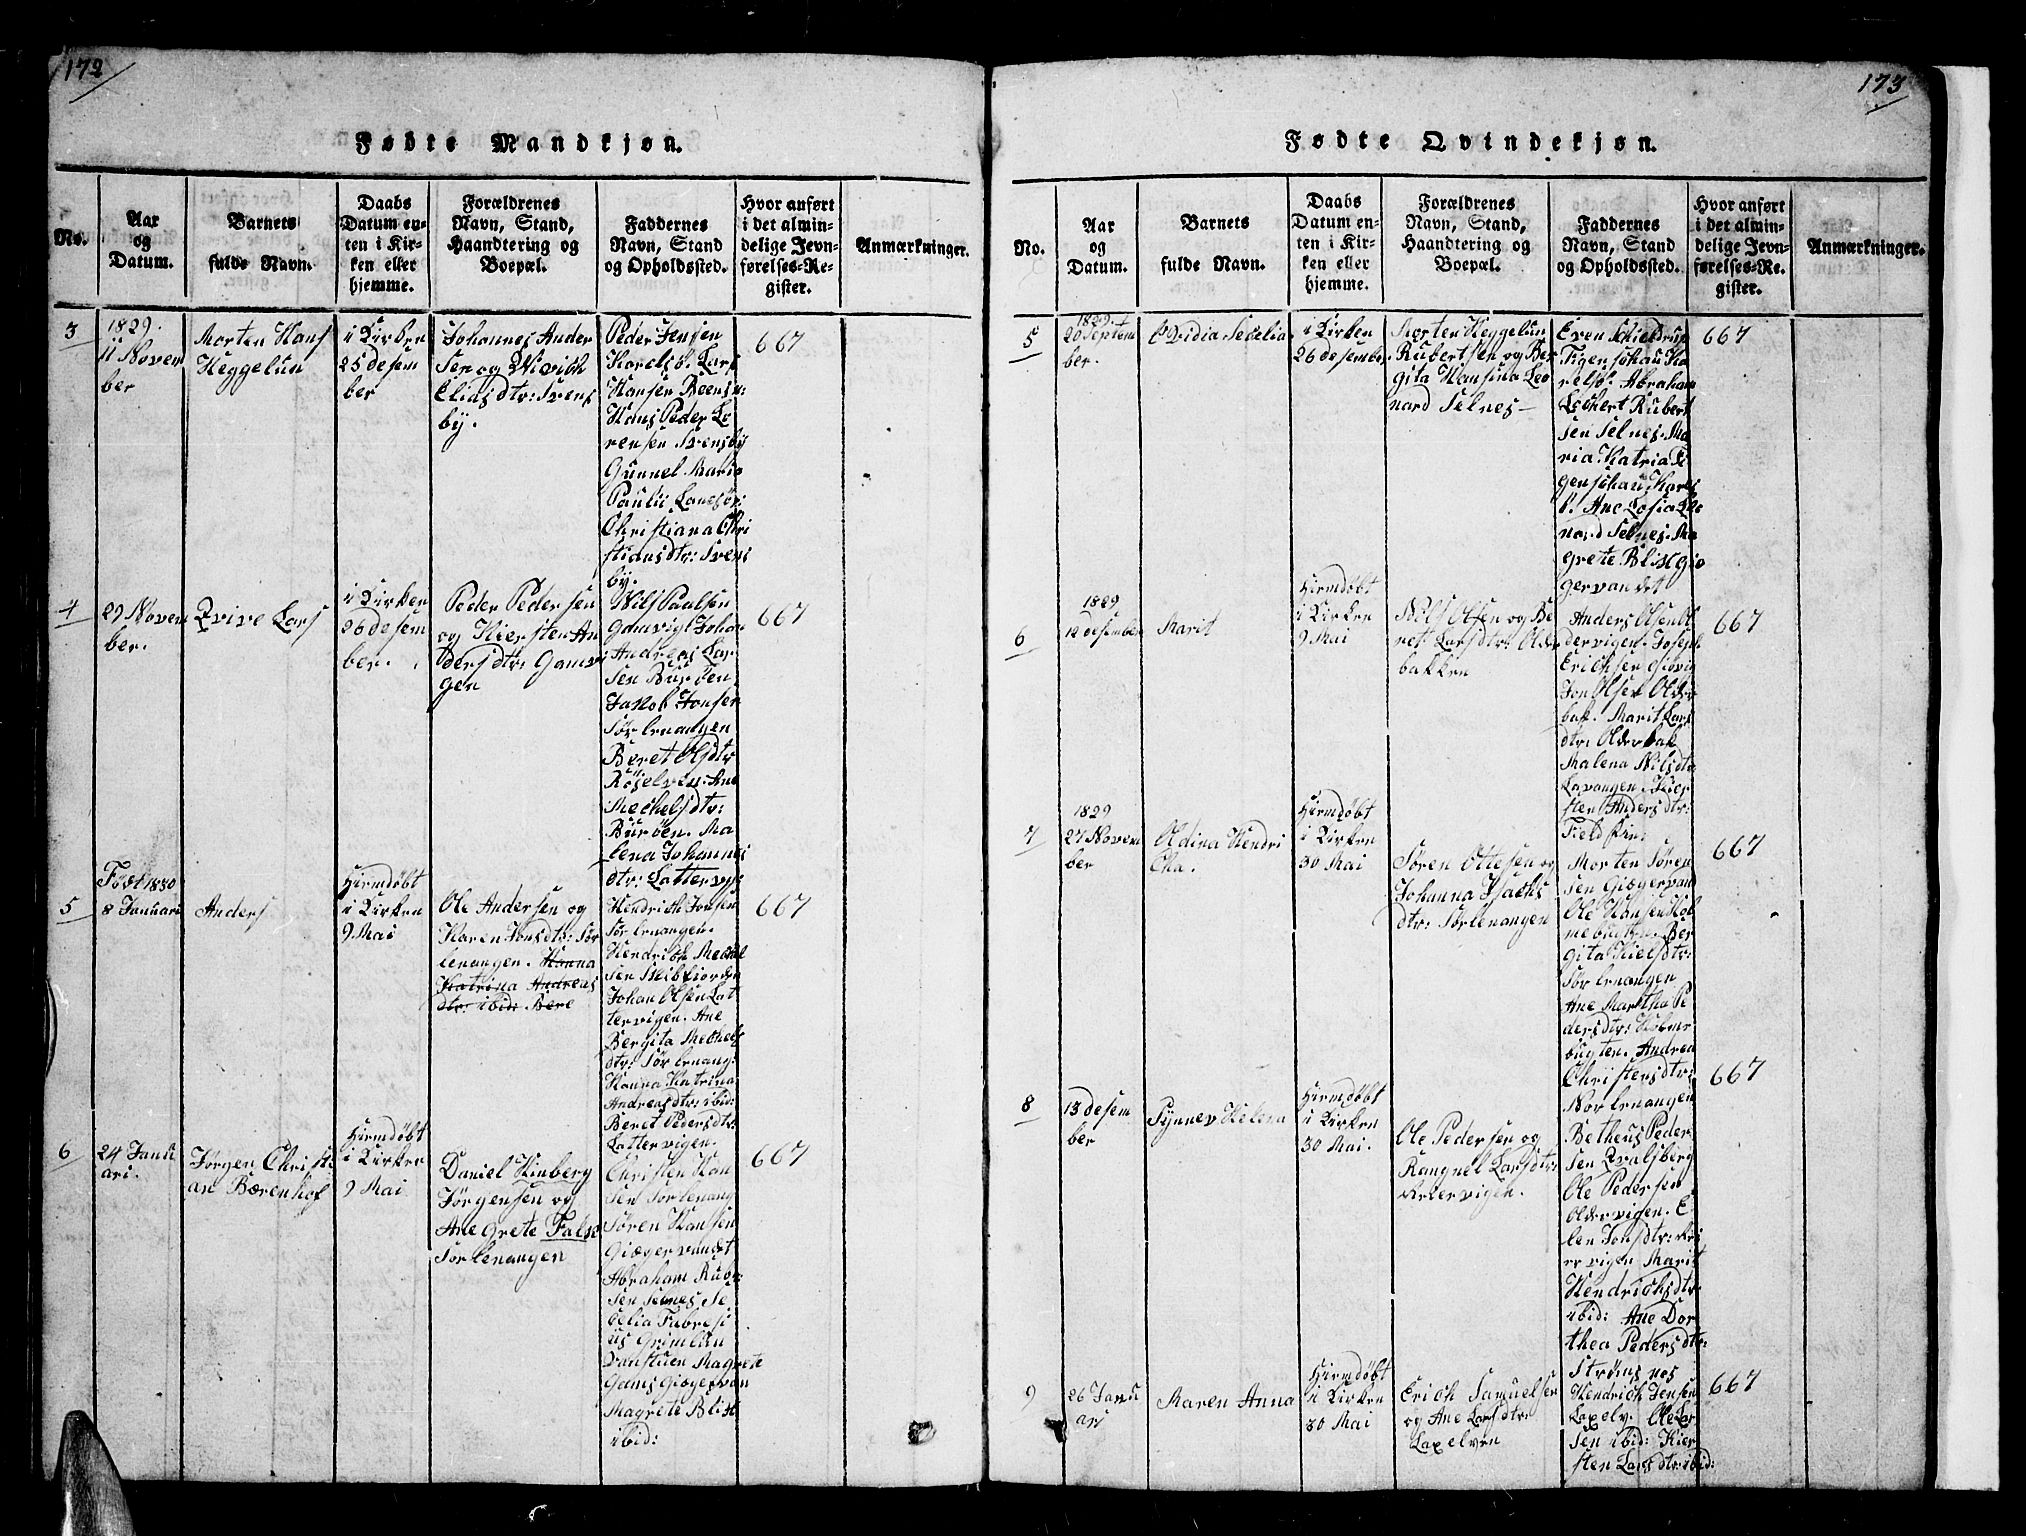 172
Fødte Mandkjøn.
No.
Aar
og
Datum.
Barnets
fulde Navn.
Daabs
Datum en-
ten i Kir-
ken eller
hjemme.
Forældrenes
Navn, Stand,
Haandtering og
Boepæl.
Faddernes
Navn, Stand
og Opholdssted.
Hvor anført
i det almin-
delige Jevn-
førelses-Re-
gister.
Anmærkninger.
3
1829.
11 Novem
ber
Morten Hans
Heggelun
i Kirken
25 desem
ber
Johannes Ander
Sen og Wivich
Eliasdtr: Svens
by.
Peder Jensen
Karelsø. Lars
Hansen Reensv:
Hans Peder Lo
rensen Svensby
Gunnel Maria
Paulii Lanesør:
Christiana Chri
stiansdtr: Svens
by.
667
4
29 Novem
ber.
Qvive Lars
i Kirken
26 desem
ber.
Peder Pedersen
og Kiersten An
dersdtr: Gamvi
gen
Nils Paulsen
Gamvigl Johan
Andreas Lar
sen Burøen
Jakob Jonsen
Sør lenangen
Beret Olsdtr
Röselven. Ane
Mechelsdtr:
Burøen. Ma
lena Johannes
dtr: Lattervig
667
5
Født 1830
8 Januari
Anders
Hiemdøbt
i Kirken
9 Mai
Ole Andersen og
Karen Jonsdtr: Sør
lenangen. Hanna
Katrina Andreas
dtr: ibid: Bere
Hendrich Jonsen
Sør lenangen.
Hendrich Mechel
sen Nibfiorden
Johan Olsen Lat
tervigen. Ane
Bergita Mechels
dtr: Sør lenang:
Hanna Katrina
Andreasdtr: ibid:
Beret Pedersdtr:
Lattervigen.
667
6
24 Janu
ari.
Jørgen Christi
an Bærenhof
Hiemdøbt
i Kirken
9 Mai
Daniel Hinberg
Jørgensen og
Ane Grete Falsr
Sør lenangen
Christen Han
sen Sør lenang
Søren Hansen
Giøgervandet
Abraham Rube
sen Selnes. Se
celia Fabresi
us Grimlun
Vanstuen Magrete
Gams Giøgervan
Magrete Blix
ibid:
667
173
Fødte Qvindekjøn.
No.
Aar
og
Datum.
Barnets
fulde Navn.
Daabs
Datum en-
ten i Kir-
ken eller
hjemme.
Forældrenes
Navn, Stand,
Haandtering og
Boepæl.
Faddernes
Navn, Stand
og Opholdssted.
Hvor anført
i det almin-
delige Jevn-
førelses-Re-
gister.
Anmærkninger.
5
1829
20 Septem
ber.
Ovidia Seselia
i Kirken
26 desember
Morten Heggelun
Rubertsen og Ber
gita Hansina Leo
nard Selnes
Even Schieldrup
Figenschau Ka
relsø. Abraham
Lochert Rubert
sen Selnes. Ma
ria Katria Fi
genschau Karls
ø. Ane Losia Leo
nard Selnes. Ma
grete Blix Giø
gervandet
667
6
1829
12 desember
Marit
Hiemdøbt
i Kirken
9 Mai
Nils Olsen og Be
ret Larsdtr: Older
bakken
Anders Olsen Ol
dervigen. Joseph
Erichsen Giøvig
Jon Olsen Older
bak. Marit Lars
dtr: Olderbak
Malena Nilsdtr:
Lavangen. Kier
sten Andersdtr:
Field
667
7
1829
27 Novem
ber
Oldina Hendri
cka.
Hiemdøbt
i Kirken
30 Mai
Søren Ottesen og
Johanna Isachs
dtr: Sørlenangen
Morten Søren
sen Giøgervand
Ole Hansen Hol
mebugten. Ber
gita Nielsdtr:
Sør lenangen
Ane Martha Pe
dersdtr: Holme
bugten. Andrea
Christensdtr:
Nor lenangen
667
8
13 desem
ber
Synnev Helena
Hiemdøbt
i Kirken
30 Mai.
Ole Pedersen og
Rangnel Larsdtr:
Arlervigen.
Betheus Peder
sen Qvalsberg
Ole Pedersen
Oldervigen. E
len Jonsdtr: Ari
ervigen Marit
Hendrichsdtr
ibid: Ane Dor
thea Pedersdtr:
Strømsnes
667
9
26 Janu
ari
Maren Anna
Hiemdøbt
i Kirken
30 Mai
Erich Samuelsen
og Ane Larsdtr:
Laxelven
Hendrich Jensen
Laxelv. Ole Lar
sen ibid: Kier
sten Larsdtr: ibid:
667